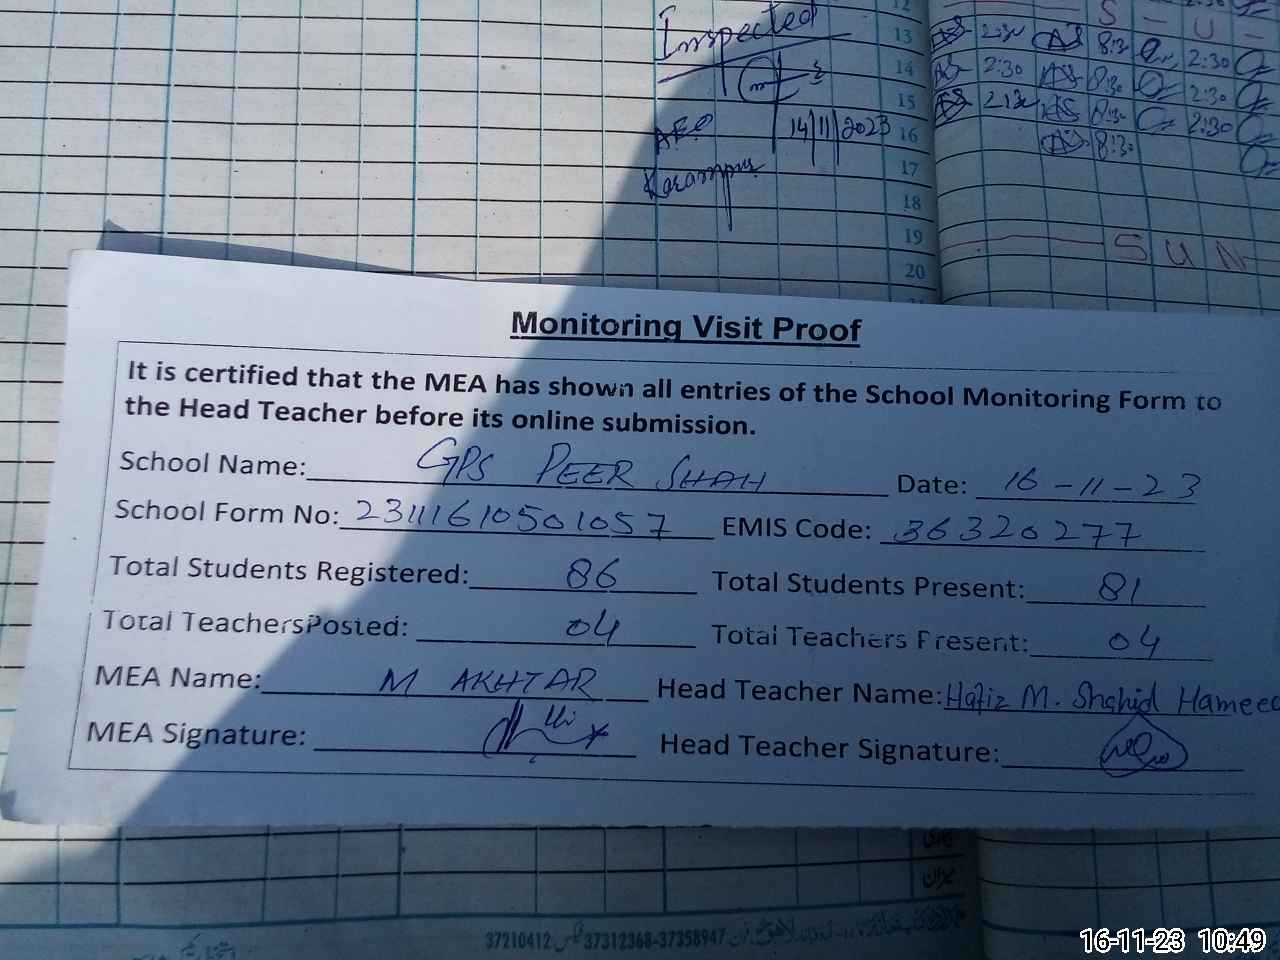 Inspected
AEO 14/11/2023
Karampur
12
13 2:30 8:30 2:30
14 2:30 8:30 2:30
15 2:30 8:30 2:30
16 8:30
17
18
19 SUN
20
Monitoring Visit Proof
It is certified that the MEA has shown all entries of the School Monitoring Form to
the Head Teacher before its online submission.
School Name: GPS PEER SHAH Date: 16-11-23
School Form No: 23111610501057 EMIS Code: 36320277
Total Students Registered: 86 Total Students Present: 81
Total TeachersPosted: 04 Total Teachers Present: 04
MEA Name: M AKHTAR Head Teacher Name: Hafiz M. Shahid Hameed
MEA Signature: Head Teacher Signature:
میزان
37210412 37312368-37358947
16-11-23 10:49